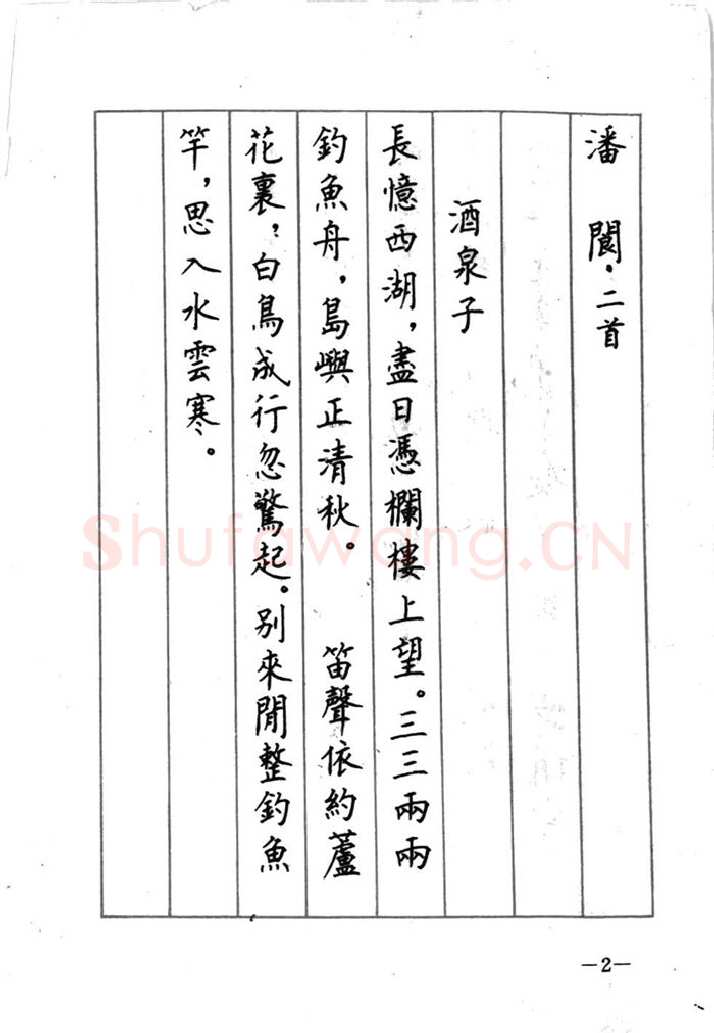 潘閬·二首
酒泉子
長憶西湖,盡日憑欄樓上望。三三兩兩
釣魚舟,島嶼正清秋。 笛聲依約蘆
花裏,白鳥成行忽驚起。别來閒整釣魚
竿,思入水雲寒。
Shufawang.CN
—2—